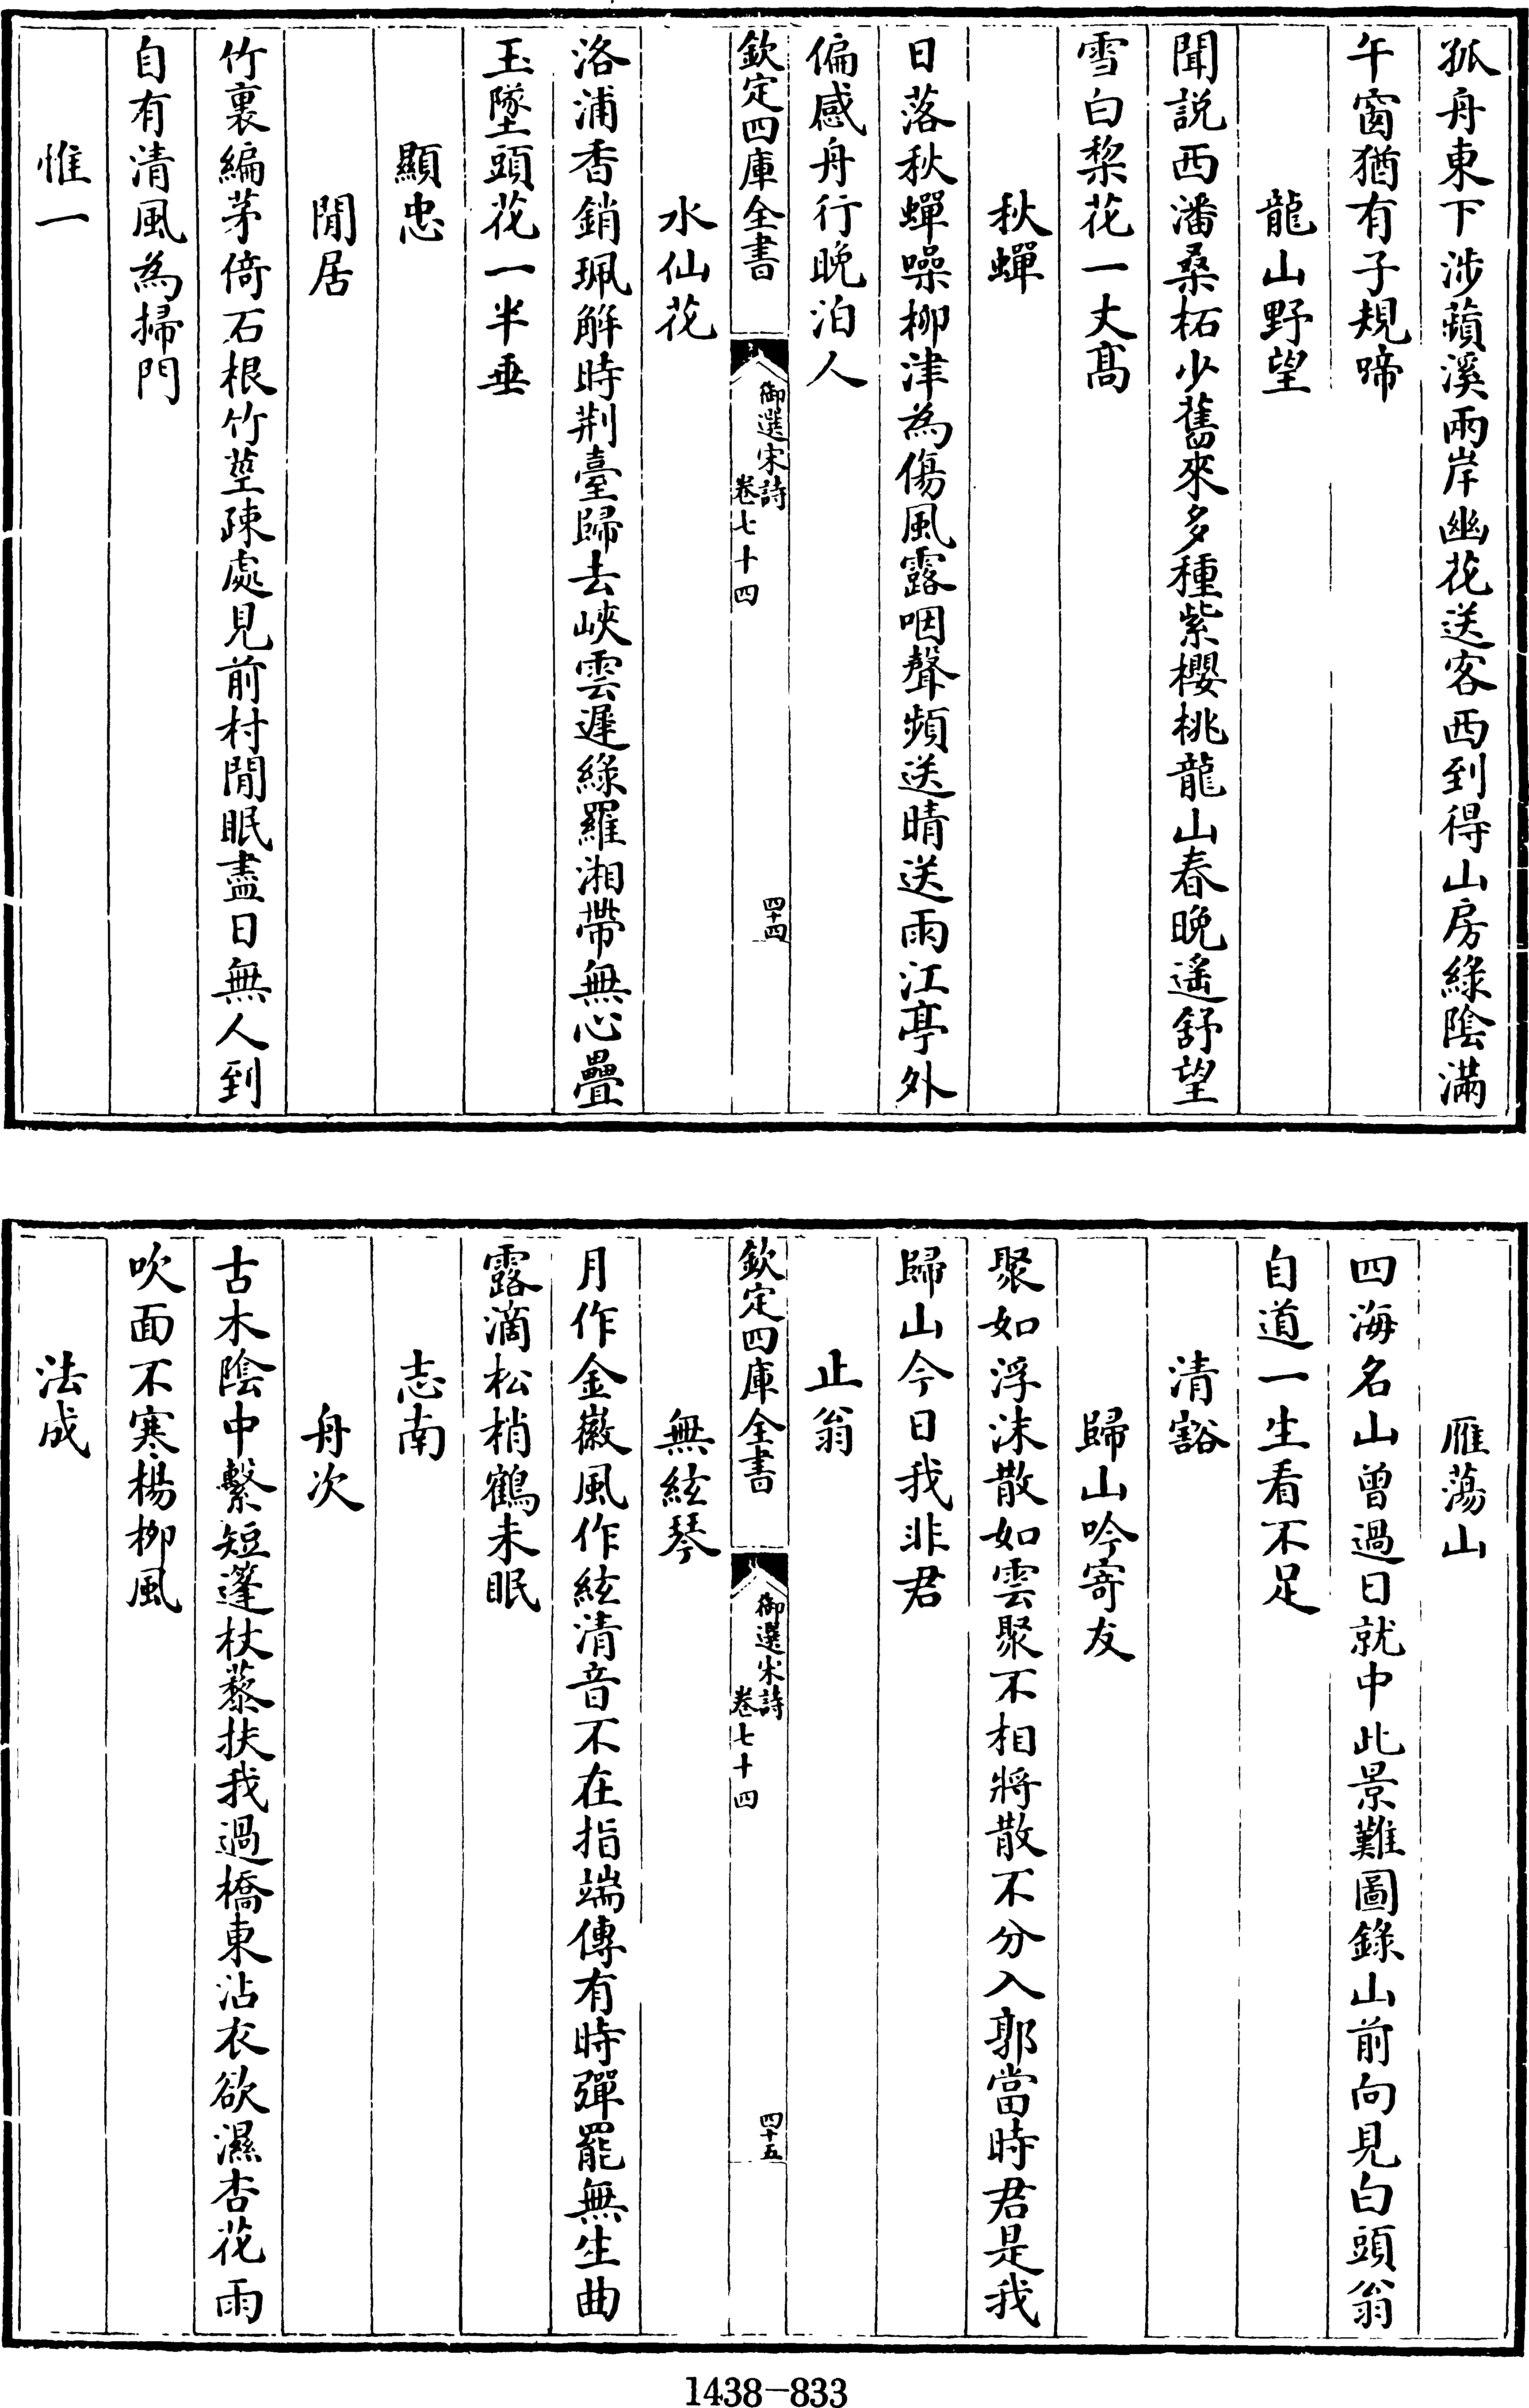 孤舟東下涉蘋溪兩岸幽花送客西到得山房綠陰滿
午窗猶有子規啼
龍山野望
聞説西潘桑柘少舊來多種紫櫻桃龍山春晚遙舒望
雪白棃花一丈高
秋蟬
日落秋蟬噪柳津為傷風露咽聲頻送晴送雨江亭外
偏感舟行晚泊人
欽定四庫全書
御選宋詩
卷七十四
四十四
水仙花
洛浦香銷珮解時荆臺歸去峽雲遲綠羅湘帶無心疊
玉墜頭花一半垂
顯忠
閒居
竹裏編茅倚石根竹莖疎處見前村閒眠盡日無人到
自有清風為掃門
惟一
雁蕩山
四海名山曾過目就中此景難圖錄山前向見白頭翁
自道一生看不足
清豁
歸山吟寄友
聚如浮沫散如雲聚不相將散不分入郭當時君是我
歸山今日我非君
止翁
欽定四庫全書
御選宋詩
卷七十四
四十五
無絃琴
月作金徽風作絃清音不在指端傳有時彈罷無生曲
露滴松梢鶴未眠
志南
舟次
古木陰中繫短篷杖藜扶我過橋東沾衣欲濕杏花雨
吹面不寒楊柳風
法成
1438-833